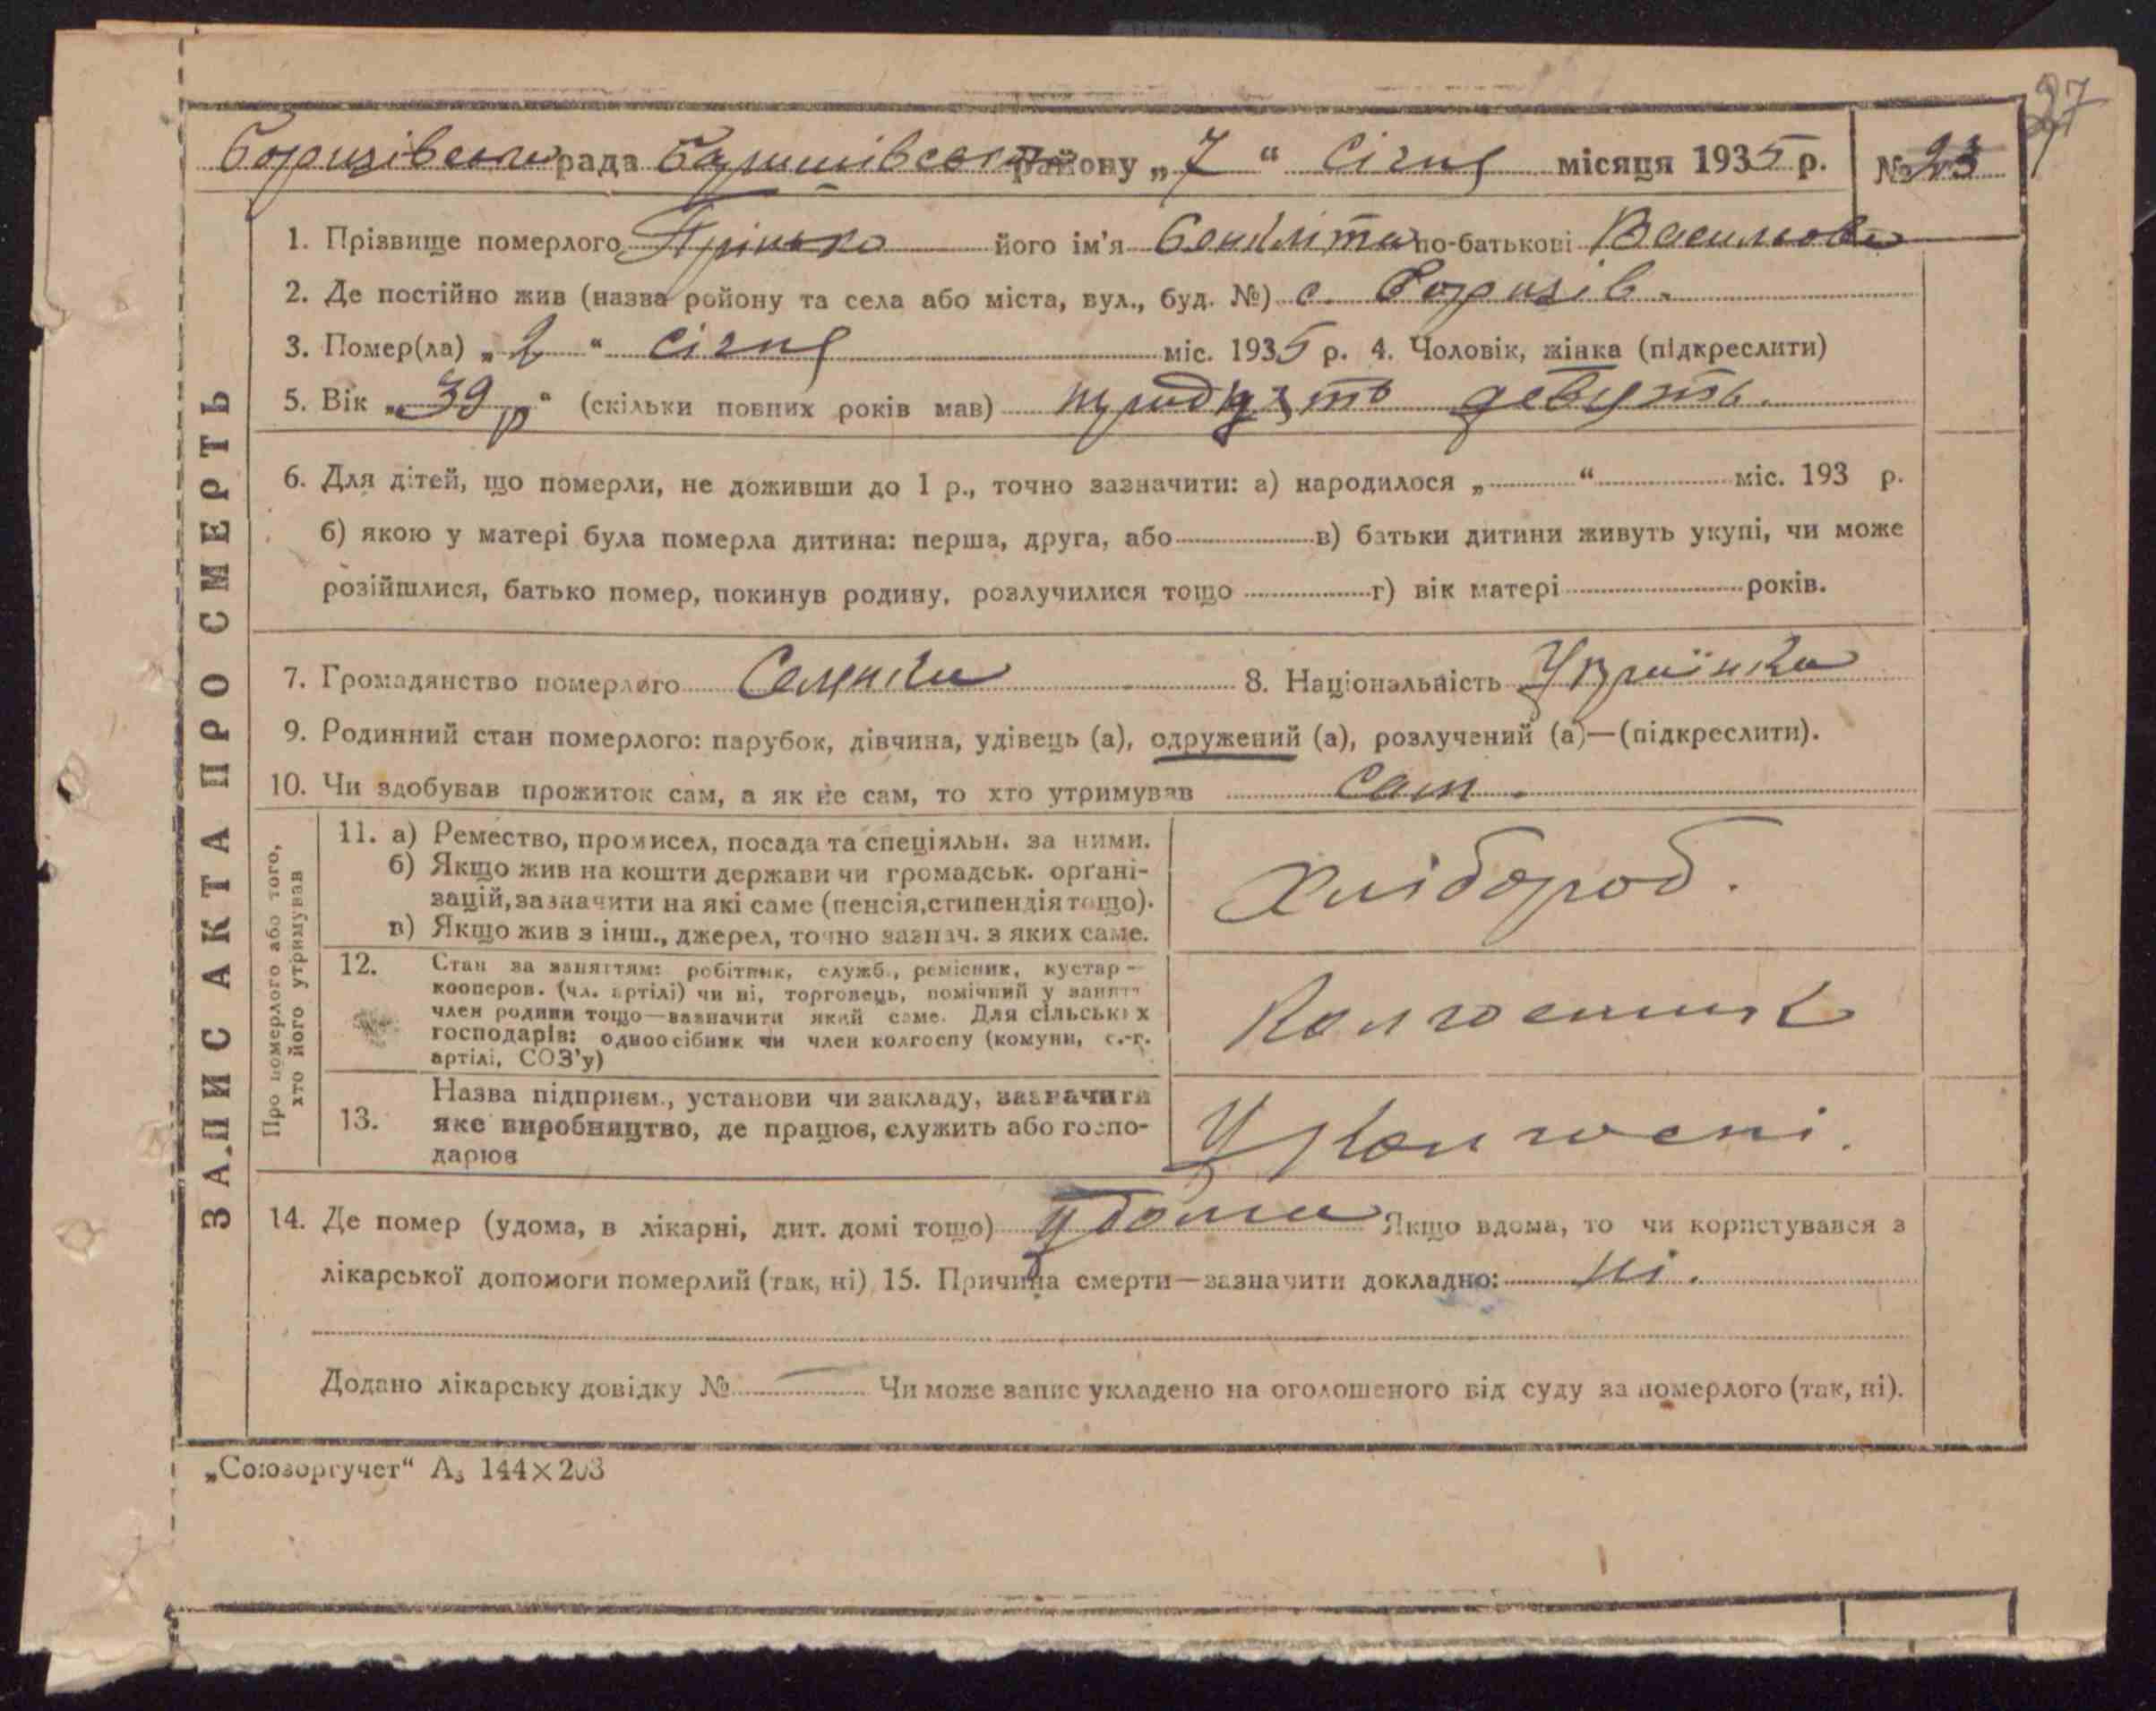 27
Борщівська рада Баришівського району „7“ Січня місяця 1935 р. № 23
ЗАПИС АКТА ПРО СМЕРТЬ
1. Прізвище померлого Грінько його ім'я по-батькові Василівна
2. Де постійно жив (назва ройону та села або міста, вул., буд. №) с.
3. Помер(ла) „2“ Січня міс. 1935 р. 4. Чоловік, жінка (підкреслити)
5. Вік „39 р“ (скільки повних років мав) тридцять девять.
6. Для дітей, що померли, не доживши до 1 р., точно зазначити: а) народилося „ “ міс. 193 р.
б) якою у матері була померла дитина: перша, друга, або в) батьки дитини живуть укупі, чи може
розійшлися, батько помер, покинув родину, розлучилися тощо г) вік матері років.
7. Громадянство померлого 8. Національність Українка
9. Родинний стан померлого: парубок, дівчина, удівець (а), одружений (а), розлучений (а)—(підкреслити).
10. Чи здобував прожиток сам, а як не сам, то хто утримував сам.
Про померлого або того,
хто його утримував
11. а) Ремество, промисел, посада та спеціяльн. за ними.
б) Якщо жив на кошти держави чи громадськ. орґані-
зацій, зазначити на які саме (пенсія, стипендія тощо).
в) Якщо жив з інш., джерел, точно зазнач. з яких саме.
Хлібороб.
12. Стан за заняттям: робітник, служб., ремісник, кустар—
кооперов. (чл. артілі) чи ні, торговець, помічний у занятт
член родини тощо—зазначити який саме. Для сільських
господарів: одноосібник чи член колгоспу (комуни, с.-г.
артілі, СОЗ'у)
Колгоспник
13. Назва підприєм., установи чи закладу, зазначити
яке виробництво, де працює, служить або госпо-
дарює
У Колгоспі.
14. Де помер (удома, в лікарні, дит. домі тощо) удома Якщо вдома, то чи користувався з
лікарської допомоги померлий (так, ні) 15. Причина смерти—зазначити докладно: ні.
Додано лікарську довідку № — Чи може запис укладено на оголошеного від суду за померлого (так, ні).
„Союзоргучет“ А₅ 144×203